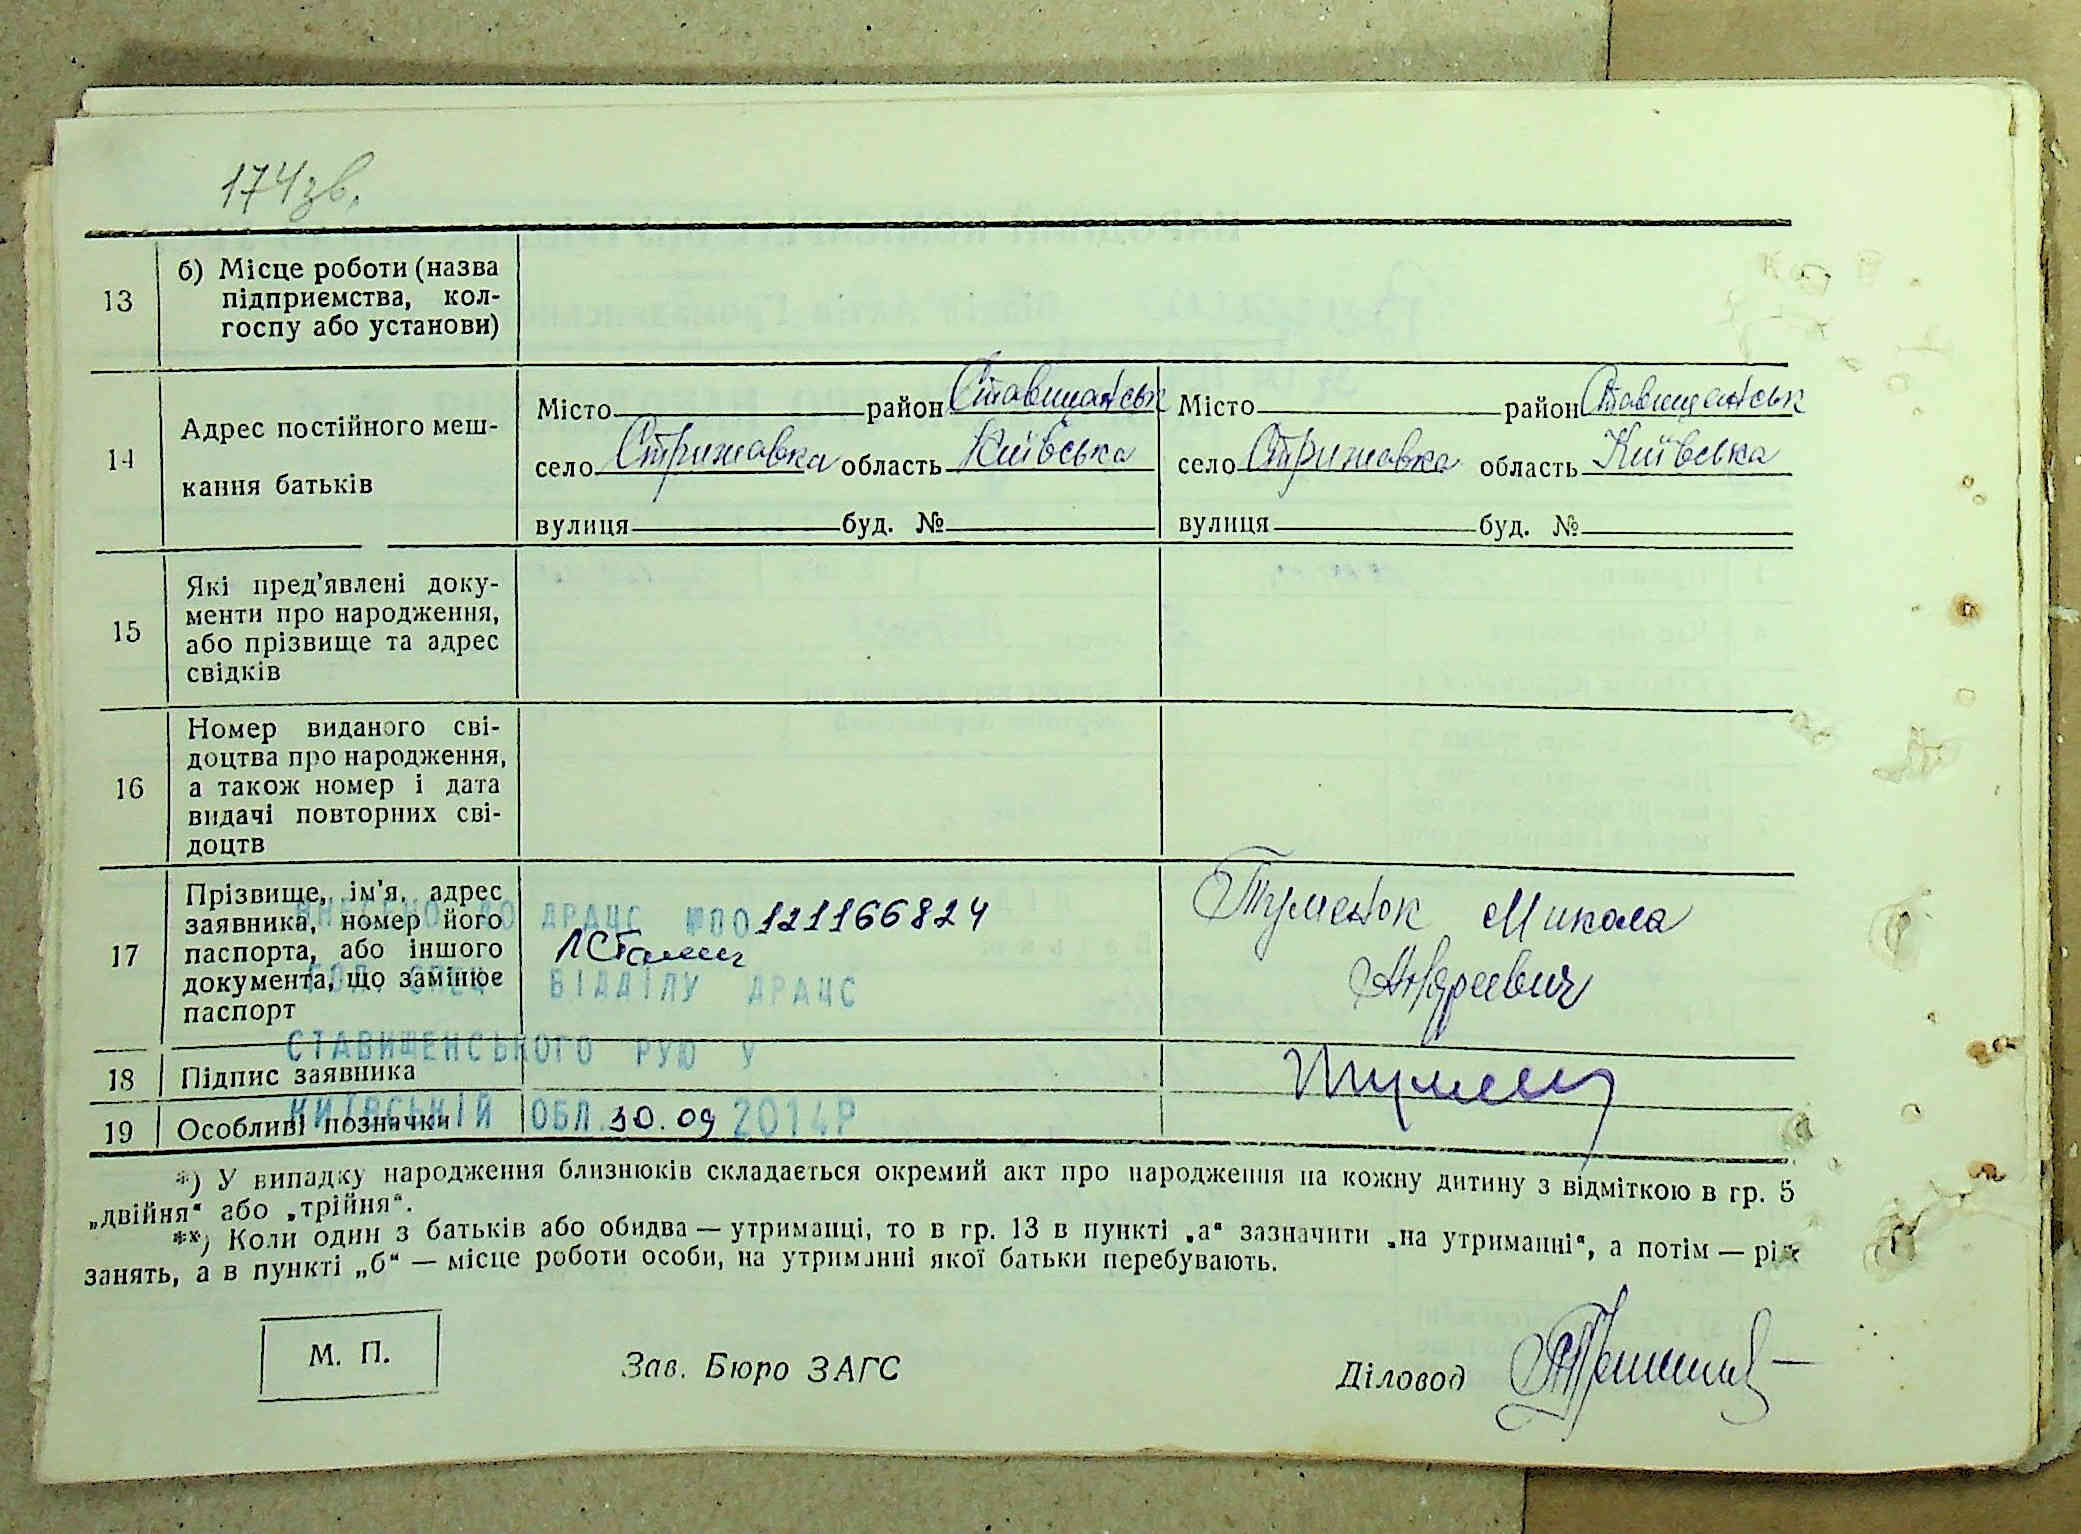 174зв.
13
б) Місце роботи (назва
підприємства, кол-
госпу або установи)
14
Адрес постійного меш-
кання батьків
Місто район Ставищанськ
село Стрижавка область Київська
вулиця буд. №
Місто район Ставищанськ
село Стрижавка область Київська
вулиця буд. №
15
Які пред'явлені доку-
менти про народження,
або прізвище та адрес
свідків
16
Номер виданого сві-
доцтва про народження,
а також номер і дата
видачі повторних сві-
доцтв
17
Прізвище, ім'я, адрес
заявника, номер його
паспорта, або іншого
документа, що замінює
паспорт
ВНЕСЕНО ДО ДРАЦС №00121166824
ГОЛ. СПЕЦ ВІДДІЛУ ДРАЦС
СТАВИЩЕНСЬКОГО РУЮ У
КИЇВСЬКІЙ ОБЛ. 30.09 2014Р
Микола
Андреевич
18 Підпис заявника
19 Особливі позначки
*) У випадку народження близнюків складається окремий акт про народження на кожну дитину з відміткою в гр. 5
„двійня“ або „трійня“.
**) Коли один з батьків або обидва — утриманці, то в гр. 13 в пункті „а“ зазначити „на утриманні“, а потім — рід
занять, а в пункті „б“ — місце роботи особи, на утриманні якої батьки перебувають.
М. П.
Зав. Бюро ЗАГС
Діловод